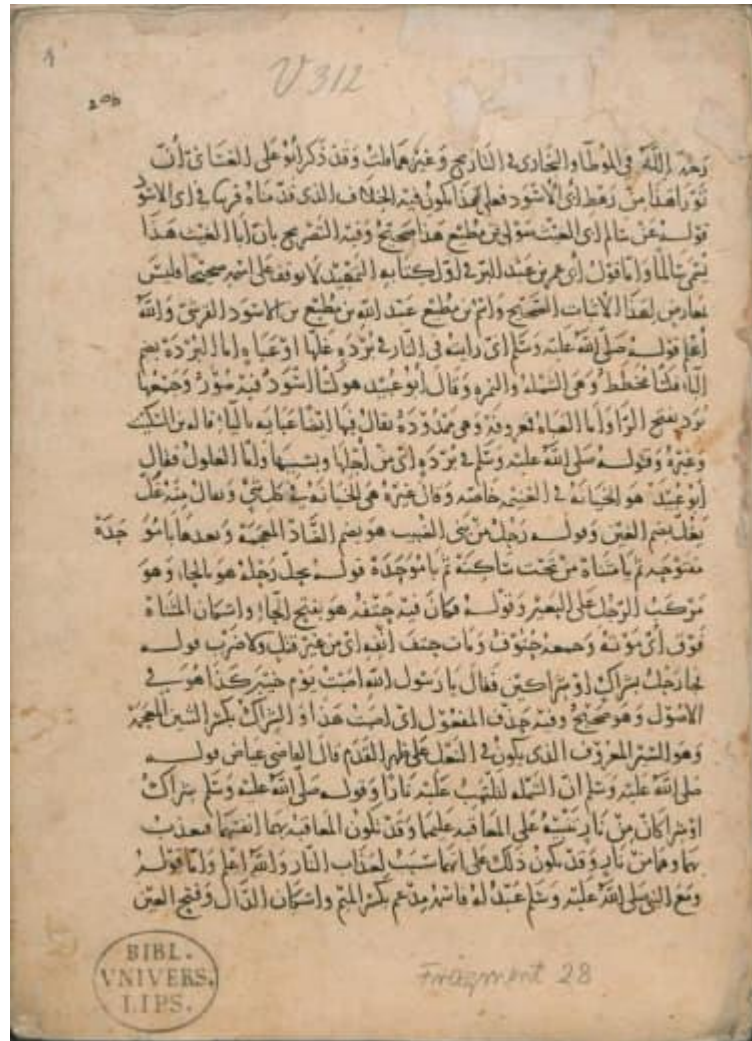 V 312
206
رحمه الله في الموطأ والبخاري في التاريخ وغيرهما قلت وقد ذكر أبو علي الغساني أن
ثور اهذا من رهط أبي الأسود فعلى هذا يكون فيه الخلاف الذي قدمناه قريبا في أبي الأسود
قوله عن سالم أبي الغيث مولى بن مطيع هذا صحيح وفيه التصريح بان أبا الغيث هذا
يسمى سالما وأما قول أبي عمر بن عبد البر في أول كتابه التمهيد لا يوقف على اسمه صحيحا فليس
بمعارض لهذا الاثبات الصحيح واسم بن مطيع عبد الله بن مطيع بن الأسود القرشي والله
أعلم قوله صلى الله عليه وسلم إني رأيته في النار في بردة غلها أو عباءة أما البردة بضم
الباء فكساء مخطط وهي الشملة والنمرة وقال أبو عبيد هو كساء أسود فيه صور وجمعها
برد بفتح الراء وأما العباءة فمعروفة وهي ممدودة يقال فيها أيضا عباية بالياء قاله بن السكيت
وغيره وقوله صلى الله عليه وسلم في بردة أي من أجلها وبسببها وأما الغلول فقال
أبو عبيد هو الخيانة في الغنيمة خاصة وقال غيره هي الخيانة في كل شيء ويقال منه غل
يغل بضم الغين وقوله رجل من بني الضبيب هو بضم الضاد المعجمة وبعدها باء موحدة
مفتوحة ثم ياء مثناة من تحت ساكنة ثم باء موحدة قوله يحل رحله هو بالحاء وهو
مركب الرجل على البعير وقوله فكان فيه حتفه هو بفتح الحاء واسكان المثناة
فوق أي موته وجمعه حتوف ومات حتف أنفه أي من غير قتل ولا ضرب قوله
فجاء رجل بشراك أو شراكين فقال يا رسول الله أصبت يوم خيبر كذا هو في
الأصول وهو صحيح وفيه حذف المفعول أي أصبت هذا والشراك بكسر الشين المعجمة
وهو السير المعروف الذي يكون في النعل على ظهر القدم قال القاضي عياض قوله
صلى الله عليه وسلم ان الشملة لتلتهب عليه نارا وقوله صلى الله عليه وسلم شراك
أو شراكان من نار تنبيه على المعاقبة عليهما وقد تكون المعاقبة بهما أنفسهما فيعذب
بهما وهما من نار وقد يكون ذلك على انهما سبب لعذاب النار والله أعلم وأما قوله
ومع النبي صلى الله عليه وسلم عبد له فاسمه مدعم بكسر الميم واسكان الدال وفتح العين
BIBL.
VNIVERS.
LIPS.
Fragment 28